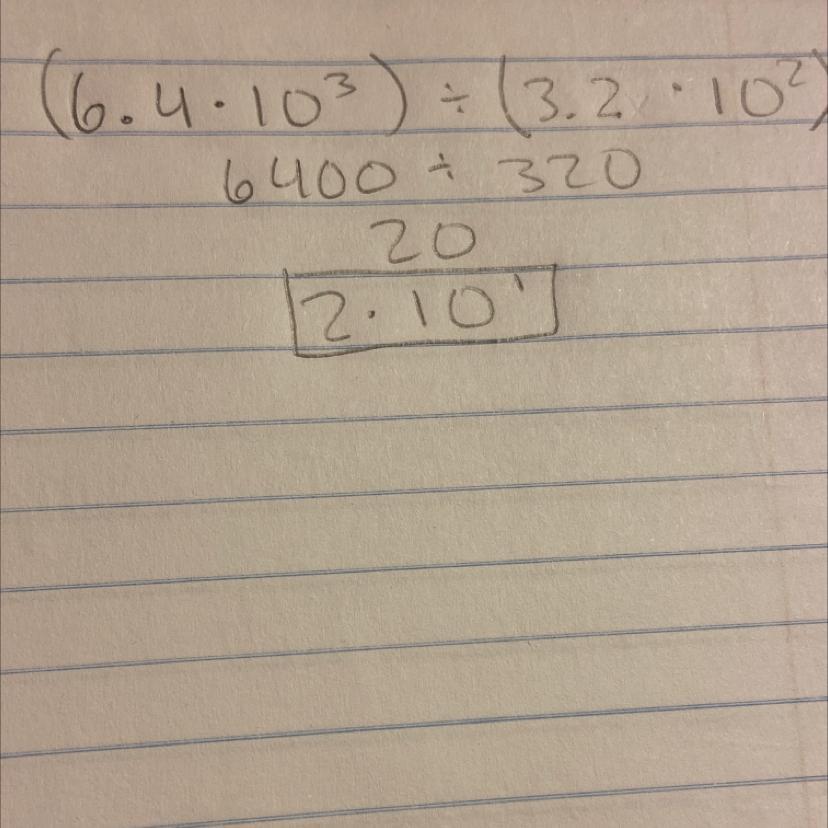 (6.4·10³) ÷ (3.2 · 10²)
6400 ÷ 320
20
2·10¹